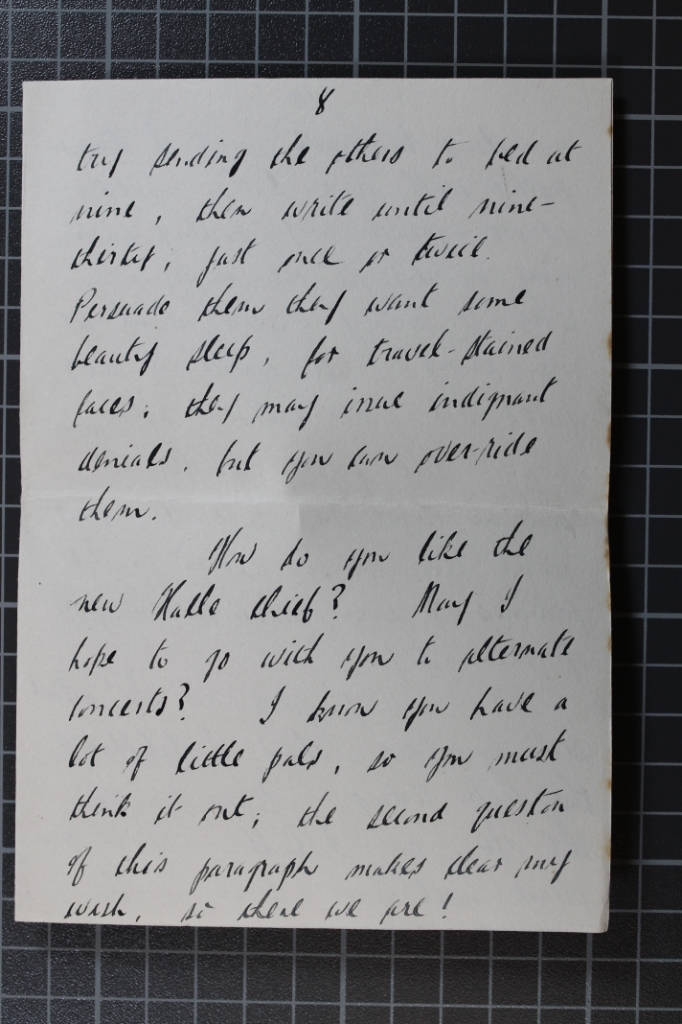 8
try sending the others to bed at
nine, then write until nine-
thirty, just once or twice.
Persuade them they want some
beauty sleep, for travel-stained
faces; they may issue indignant
denials, but you can over-ride
them.
How do you like the
new Halle chief? May I
hope to go with you to alternate
concerts? I know you have a
lot of little pals, so you must
think it out; the second question
of this paragraph makes clear my
wish, so there we are!